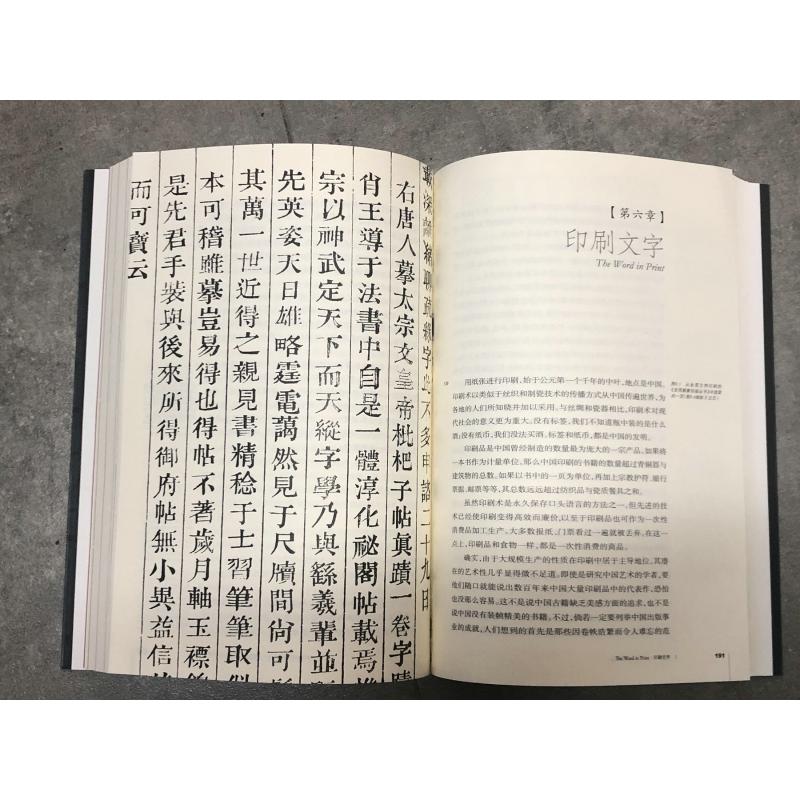 字此不多申諮二十九日
右唐人摹太宗文皇帝枇杷子帖真蹟一卷字蹟
肖王導于法書中自是一體淳化祕閣帖載焉
宗以神武定天下而天縱字學乃與繇羲輩並
先英姿天日雄略霆電藹然見于尺牘間尙可
其萬一世近得之親見書精稔于士習筆筆取似
本可稽雖摹豈易得也得帖不著歲月軸玉褾
是先君手裝與後來所得御府帖無小異益信
而可寶云
【第六章】
印刷文字
The Word in Print
用纸张进行印刷，始于公元第一个千年的中叶，地点是中国。
印刷术以类似于丝织和制瓷技术的传播方式从中国传遍世界，为
各地的人们所知晓并加以采用。与丝绸和瓷器相比，印刷术对现
代社会的意义更为重大。没有标签，我们不知道瓶中装的是什么
票；没有纸币，我们没法买酒。标签和纸币，都是中国的发明。
印刷品是中国曾经制造的数量最为庞大的一宗产品。如果将
一本书作为计量单位，那么中国印刷的书籍的数量超过青铜器与
建筑物的总数。如果以书中的一页为单位，再加上宗教护符、银行
票据、邮票等等，其总数远远超过纺织品与瓷质餐具之和。
虽然印刷术是永久保存口头语言的方法之一，但先进的技
术已经使印刷变得高效而廉价，以至于印刷品也可作为一次性
消费品加工生产。大多数报纸、门票看过一遍就被丢弃。在这一
点上，印刷品和食物一样，都是一次性消费的商品。
确实，由于大规模生产的性质在印刷中居于主导地位，其潜
在的艺术性几乎显得微不足道。即使是研究中国艺术的学者，要
他们随口就能说出数百年来中国大量印刷品中的代表作，恐怕
也没那么容易。这不是说中国古籍缺乏美感方面的追求，也不是
说中国没有装帧精美的书籍。不过，倘若一定要列举中国出版事
业的成就，人们想到的首先是那些因卷帙浩繁而令人难忘的范
The Word in Print 印刷文字
191